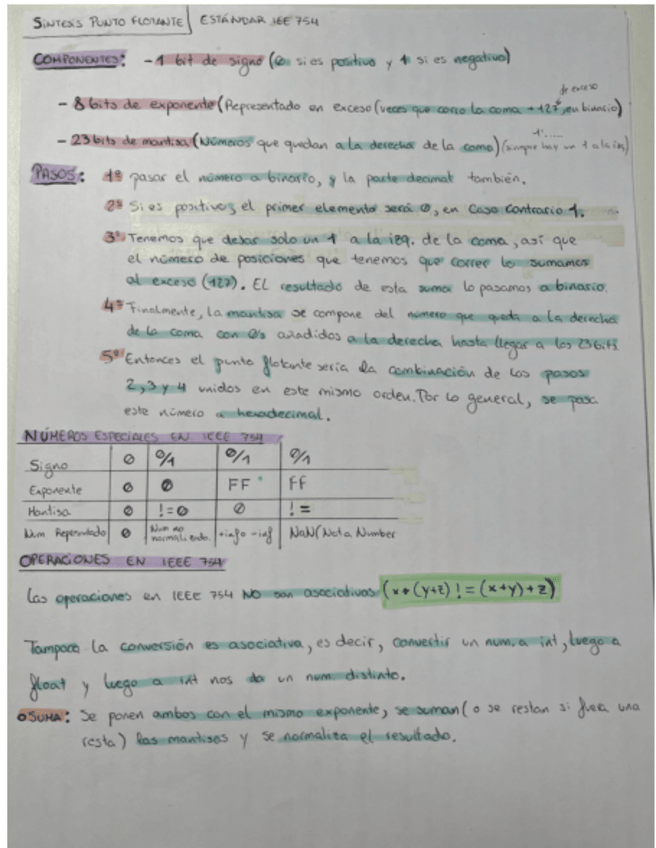 SÍNTESIS PUNTO FLOTANTE | ESTÁNDAR IEE 754
COMPONENTES: - 1 bit de signo (0 si es positivo y 1 si es negativo)
de exceso
- 8 bits de exponente (Representado en exceso (veces que corro la coma + 127, en binario)
1'.....
- 23 bits de mantisa (Números que quedan a la derecha de la coma) (siempre hay un 1 a la izq)
PASOS: 1º pasar el número a binario, y la parte decimal también.
2º Si es positivo, el primer elemento será 0, en caso contrario 1.
3º Tenemos que dejar solo un 1 a la izq. de la coma, así que
el número de posiciones que tenemos que correr lo sumamos
al exceso (127). El resultado de esta suma lo pasamos a binario.
4º Finalmente, la mantisa se compone del número que queda a la derecha
de la coma con 0's añadidos a la derecha hasta llegar a los 23 bits
5º Entonces el punto flotante sería la combinación de los pasos
2, 3 y 4 unidos en este mismo orden. Por lo general, se pasa
este número a hexadecimal.
NÚMEROS ESPECIALES EN IEEE 754
Signo 0 0/1 0/1 0/1
Exponente 0 0 FF FF
Mantisa 0 !=0 0 !=
Num Representado 0 Num no normaliz. +info -inf NaN (Not a Number
OPERACIONES EN IEEE 754
Las operaciones en IEEE 754 NO son asociativas (x+(y+z) != (x+y)+z)
Tampoco la conversión es asociativa, es decir, convertir un num. a int, luego a
float y luego a int nos da un num. distinto.
o SUMA: Se ponen ambos con el mismo exponente, se suman (o se restan si fuera una
resta) las mantisas y se normaliza el resultado.